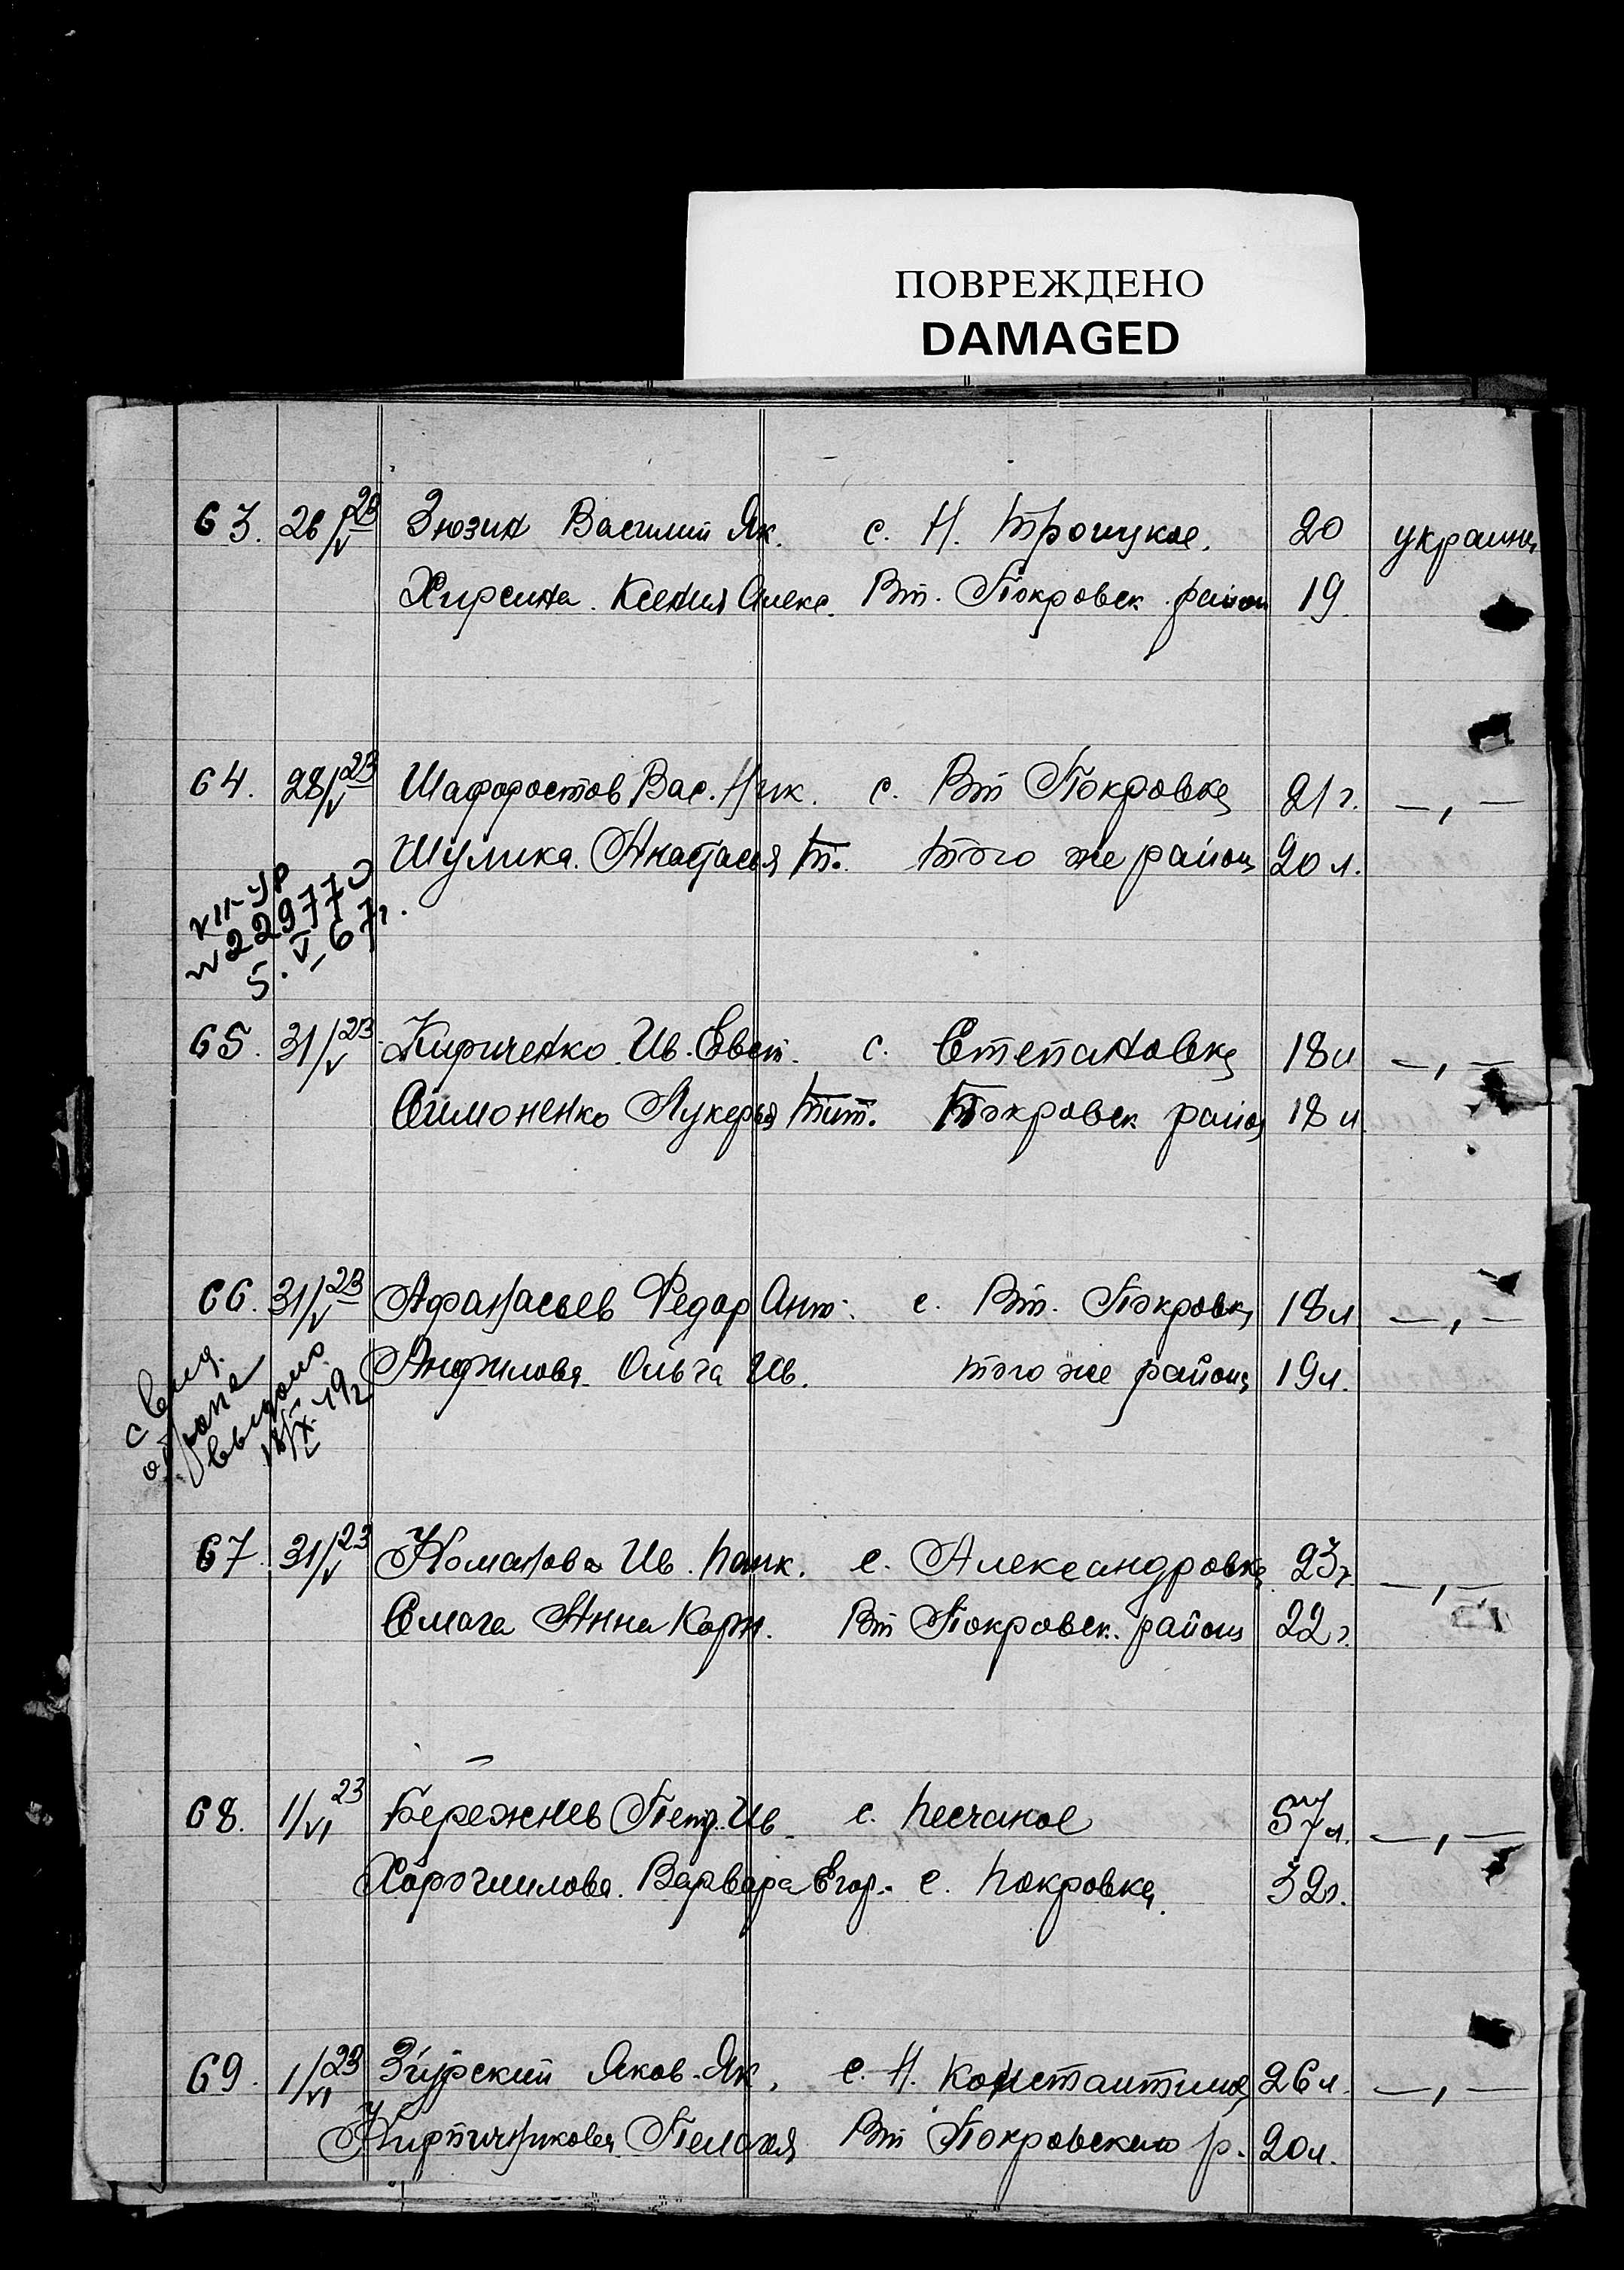 ПОВРЕЖДЕНО
DAMAGED
63. 26/V 23 Зюзин Василий Як. с. Н. Троицкое. 20 украинц
Хирсина. Ксения Алекс. Вт. Покровск. район 19
64. 28/V 23 Шафоростов Вас. Ник. с. Вт Покровка 21 г. —,—
Шулика. Анастасья Т. того же района 20 л.
VII-УР
N 229770
5.V-67г.
65. 31/V 23 Кириченко Ив. Евст. с. Степановка 18 л —,—
Симоненко Лукерья Тит. Покровск район 18 л
66. 31/V 23 Афанасьев Федор Ант. с. Вт. Покровка 18 л —,—
Анфилова Ольга Ив. того же района 19 л.
67. 31/V 23 Ив. Панк. с. Александровка 23 г. —,—
Смага Анна Корн. Вт Покровск. района 22 г.
68. 1/VI 23 Бережнев Петр. Ив. с. Песчаное 57 л. —,—
Варвара Егор. с. Покровка. 32 г.
69. 1/VI 23 Згурский Яков. Як. с. Н. Константинов 26 л. —,—
Кирпичникова Пелагея Вт Покровского р. 20 л.